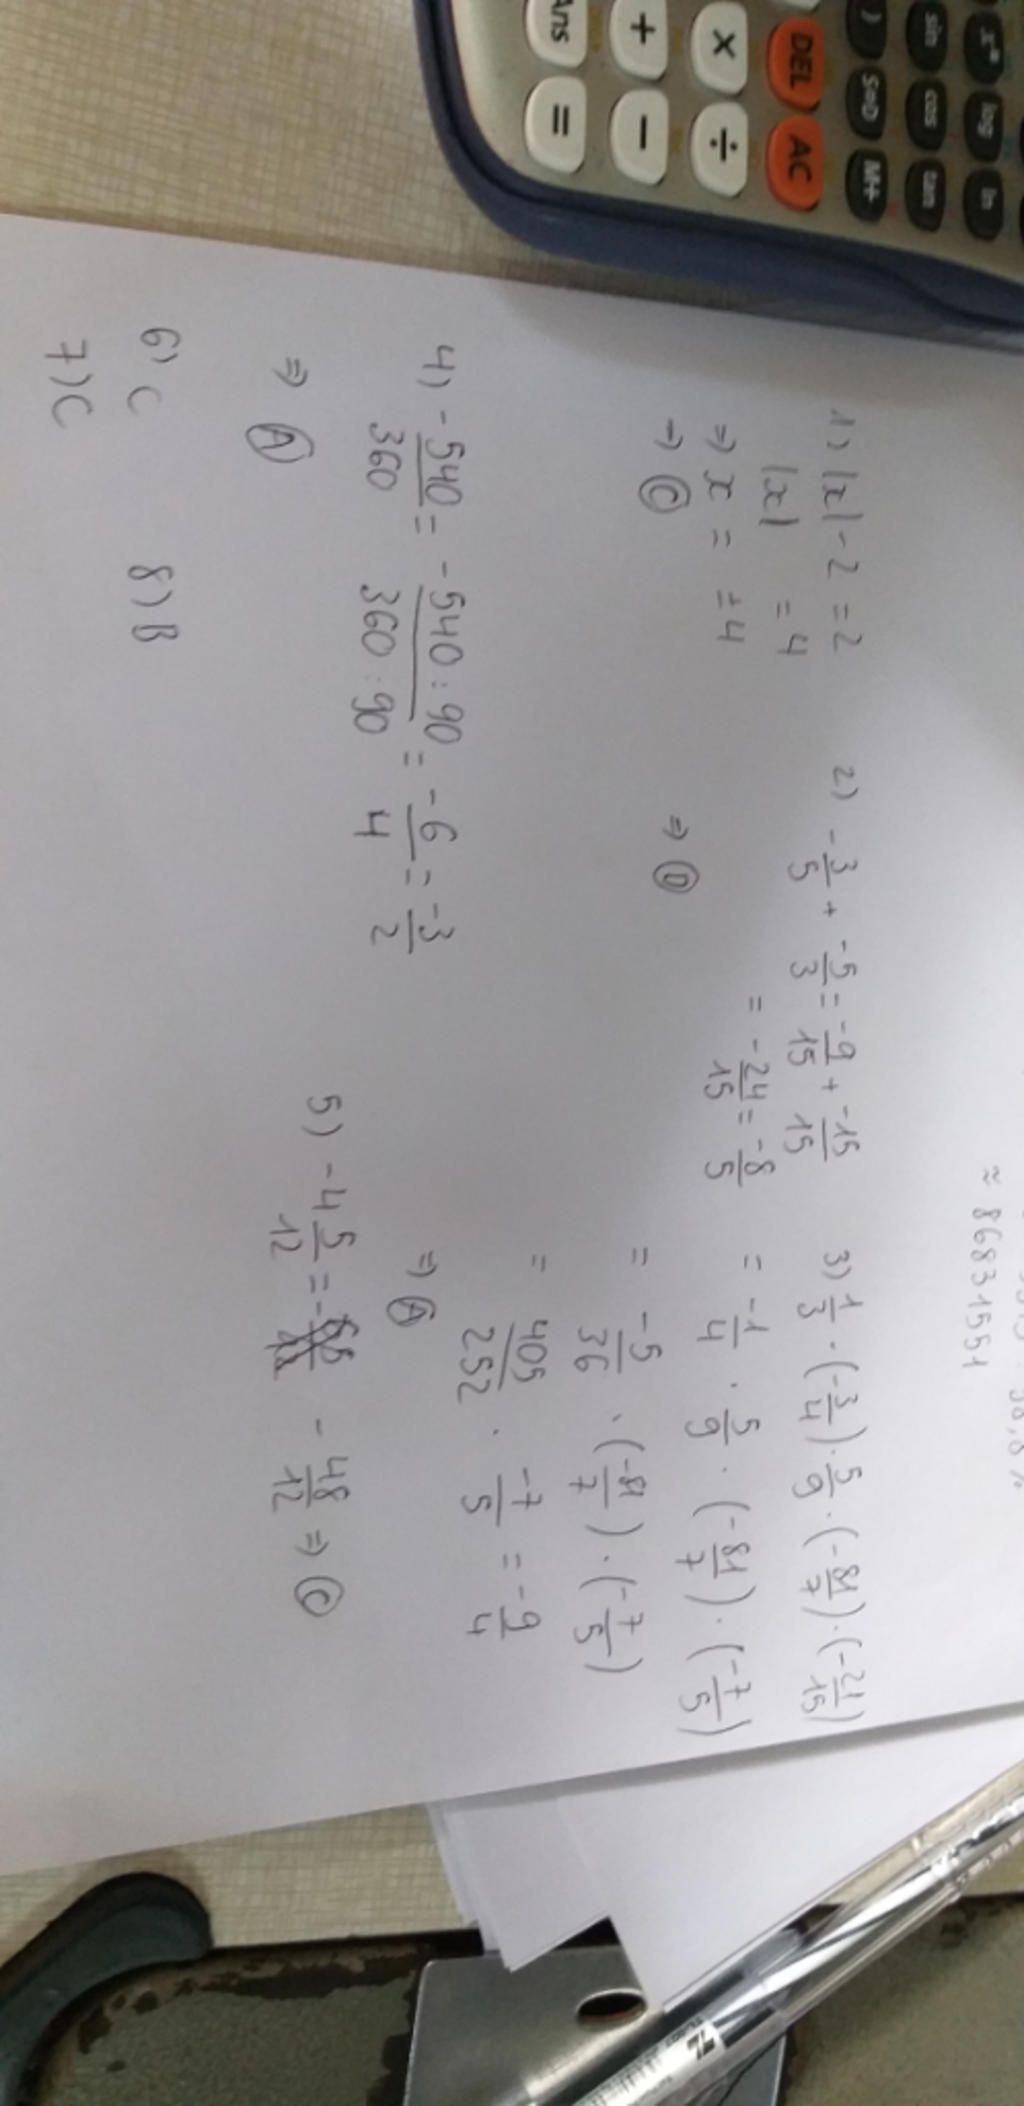 x^■ log ln
sin cos tan
) S⇔D M+
DEL AC
× ÷
+ −
Ans =
≈ 86831551
1) |x| - 2 = 2
|x| = 4
⇒ x = ±4
→ C
2) -3/5 + -5/3 = -9/15 + -15/15
= -24/15 = -8/5
⇒ D
3) 1/3 · (-3/4) · 5/9 · (-81/7) · (-21/15)
= -1/4 · 5/9 · (-81/7) · (-7/5)
= -5/36 · (-81/7) · (-7/5)
= 405/252 · -7/5 = -9/4
⇒ A
4) -540/360 = -540:90/360:90 = -6/4 = -3/2
⇒ A
5) -4 5/12 = - 48/12 ⇒ C
6) C
8) B
7) C